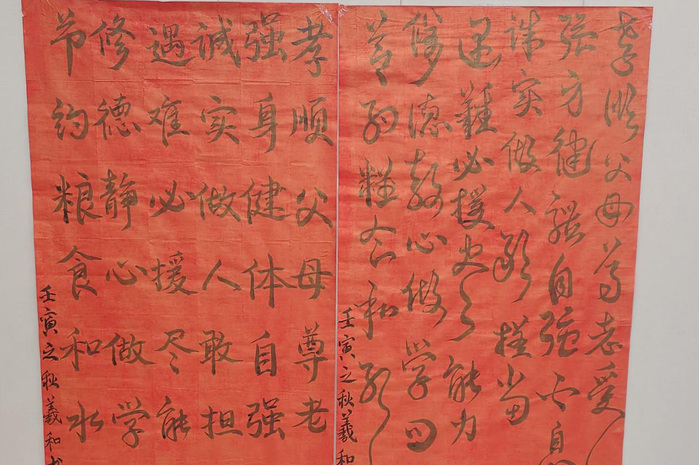 孝顺父母尊老爱
强身健體自强自
诚实做人敢担当
遇難必援尽能力
修德静心做學
节约糧食和
壬寅之秋羲和
孝顺父母尊老
强身健体自强
诚实做人敢担
遇难必援尽能
修德静心做学
节约粮食和水
壬寅之秋羲和书